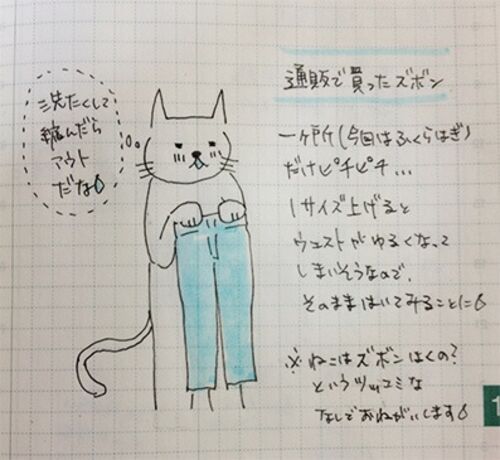 洗たくして
縮んだら
アウト
だな
通販で買ったズボン
一ヶ所(今回はふくらはぎ)
だけピチピチ...
1サイズ上げると
ウェストがゆるくなって
しまいそうなので、
そのままはいてみることに
※ねこはズボンはくの?
というツッコミは
なしでおねがいします
1